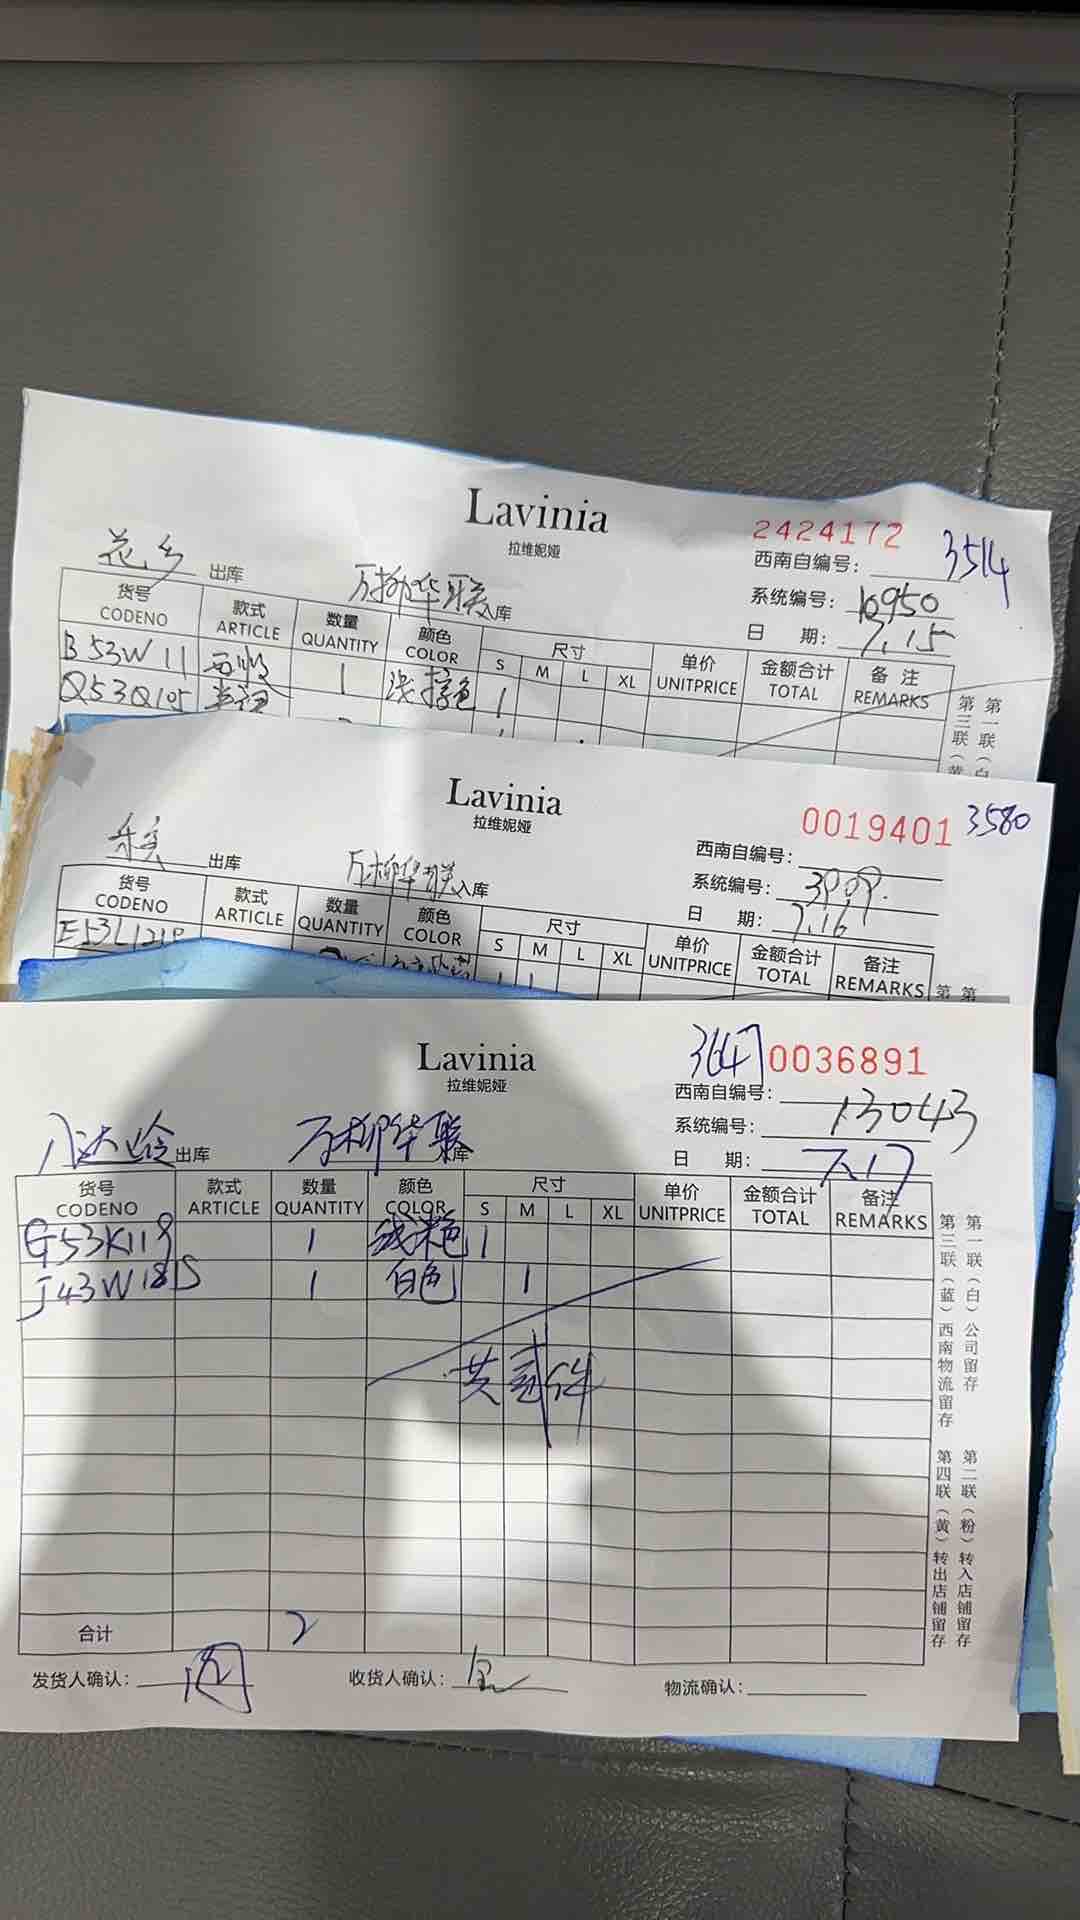 Lavinia
拉维妮娅
2424172 3514
西南自编号:
花乡 出库 万柳华联 入库
系统编号: 10950
日 期: 7.15
货号 款式 数量 颜色 尺寸 单价 金额合计 备 注
CODENO ARTICLE QUANTITY COLOR S M L XL UNITPRICE TOTAL REMARKS
B53W11 西收 1 浅 色 1
Q53Q105
第一联(白
第三联(黄
Lavinia
拉维妮娅
0019401 3580
西南自编号:
出库 万柳华联 入库
系统编号: 3909.
日 期: 7.16
货号 款式 数量 颜色 尺寸 单价 金额合计 备注
CODENO ARTICLE QUANTITY COLOR S M L XL UNITPRICE TOTAL REMARKS
E53L121
第 第
Lavinia
拉维妮娅
3647 0036891
西南自编号:
系统编号: 13043
八达岭 出库 万柳华联 库
日 期: 7.17
货号 款式 数量 颜色 尺寸 单价 金额合计 备注
CODENO ARTICLE QUANTITY COLOR S M L XL UNITPRICE TOTAL REMARKS
G53K119 1 浅米色 1
J43W1815 1 白色 1
共贰件
合计 2
第一联(白)公司留存 第二联(粉)转入店铺留存
第三联(蓝)西南物流留存 第四联(黄)转出店铺留存
发货人确认: 收货人确认: 物流确认: